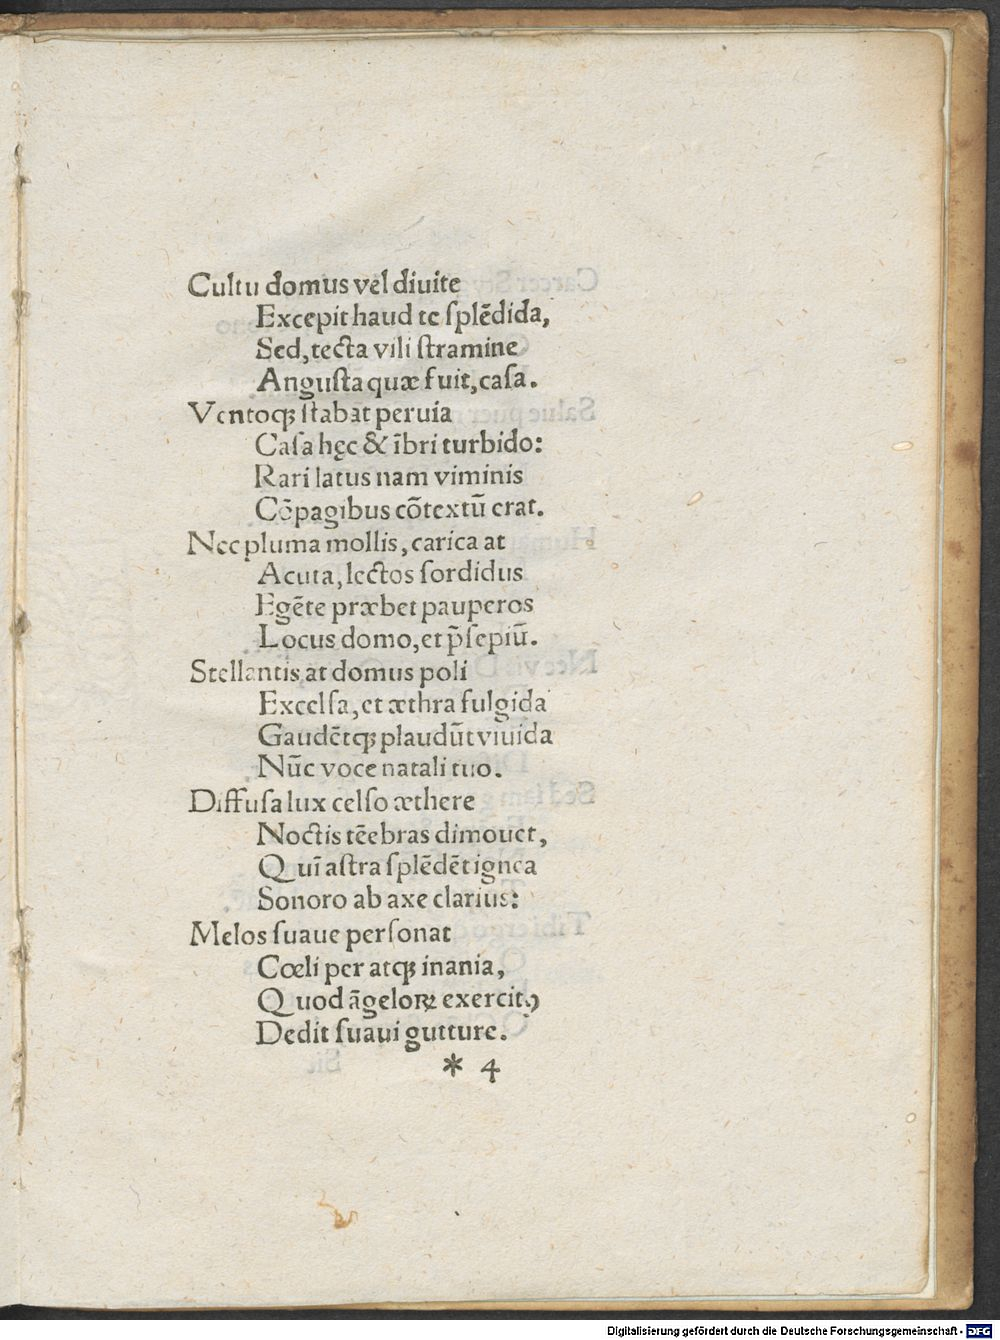 Cultu domus vel diuite
Excepit haud te ſplēdida,
Sed, tecta vili ſtramine
Anguſta quæ fuit, caſa.
Ventoqꝫ ſtabat peruia
Caſa hęc & ībri turbido:
Rari latus nam viminis
Cōpagibus cōtextū erat.
Nec pluma mollis, carica at
Acuta, lectos ſordidus
Egēte præbet pauperos
Locus domo, et p̄ſepiū.
Stellantis at domus poli
Excelſa, et æthra fulgida
Gaudētqꝫ plaudūt viuida
Nūc voce natali tuo.
Diffuſa lux celſo æthere
Noctis tēebras dimouet,
Quī aſtra ſplēdēt ignea
Sonoro ab axe clarius:
Melos ſuaue perſonat
Cœli per atqꝫ inania,
Quod āgeloꝝ exercitꝰ
Dedit ſuaui gutture.
* 4
Digitalisierung gefördert durch die Deutsche Forschungsgemeinschaft - DFG